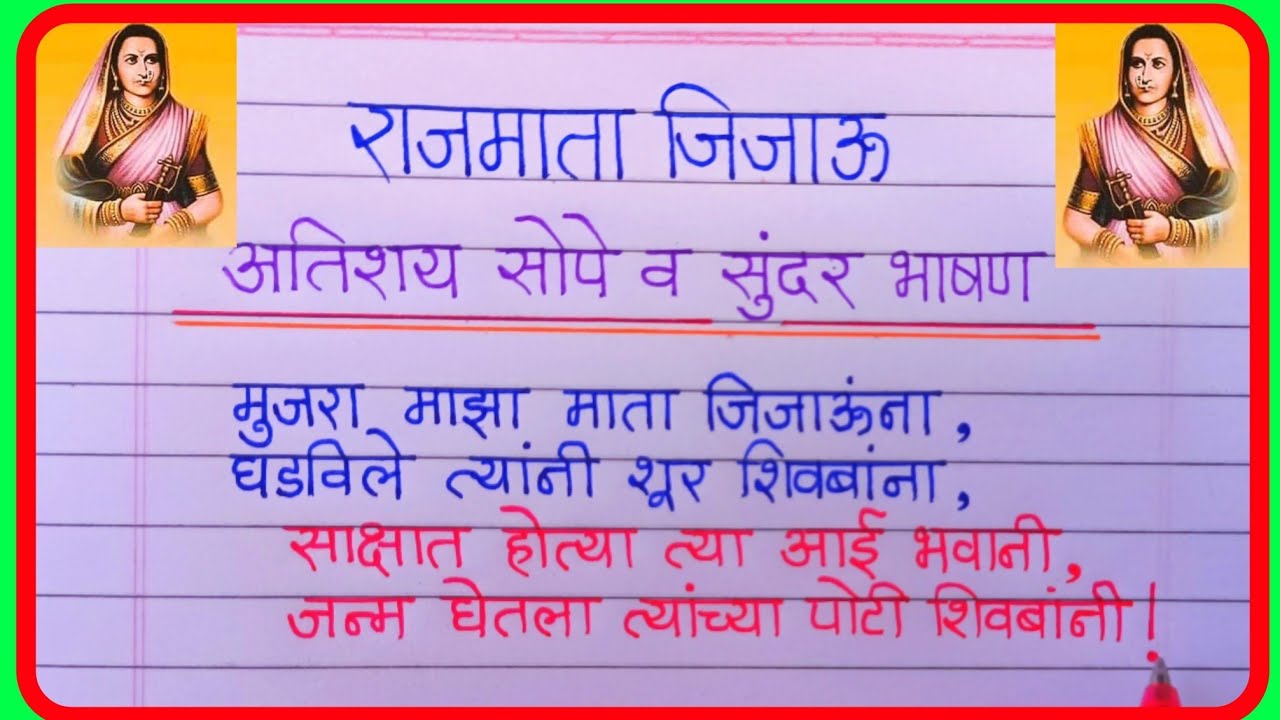 राजमाता जिजाऊ
अतिशय सोपे व सुंदर भाषण
मुजरा माझा माता जिजाऊंना,
घडविले त्यांनी शूर शिवबांना,
साक्षात होत्या त्या आई भवानी,
जन्म घेतला त्यांच्या पोटी शिवबांनी!